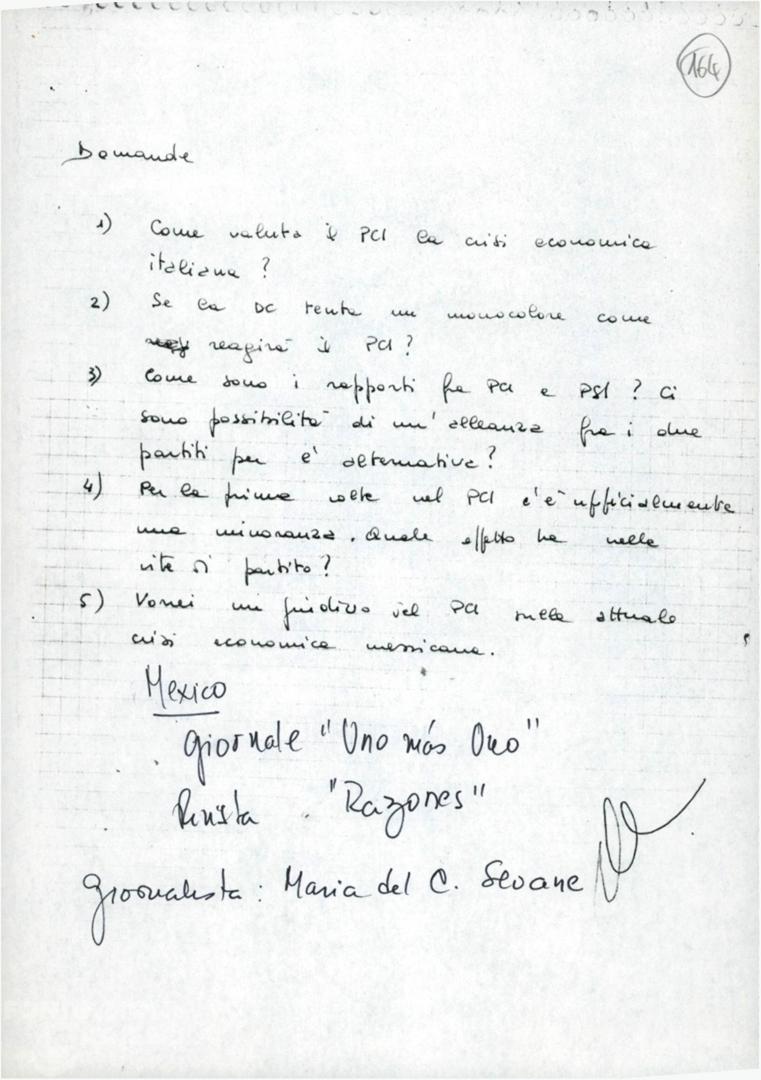 164
Domande
1) Come valuta il PCI la crisi economica
italiana ?
2) Se la DC tenta un monocolore come
reagirà il PCI ?
3) Come sono i rapporti fra PCI e PSI ? Ci
sono possibilità di un' alleanza fra i due
partiti per è alternativa ?
4) Per la prima volta nel PCI c'è ufficialmente
una minoranza. Quale effetto ha nella
vita di partito ?
5) Vorrei un giudizio del PCI sulla attuale
crisi economica messicana.
Mexico
giornale "Uno más Uno"
Rivista "Razones"
giornalista : Maria del C. Seoane